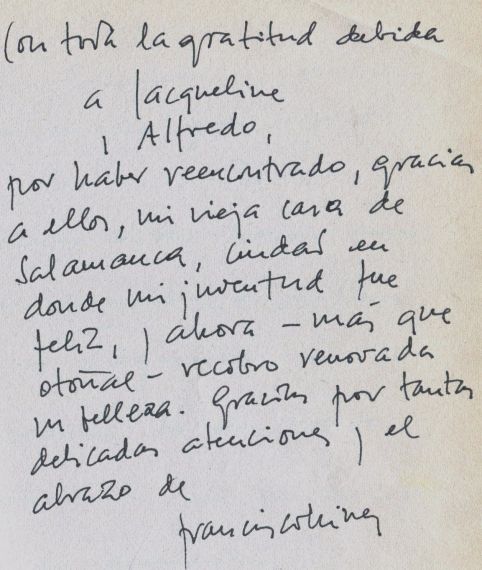 Con toda la gratitud debida
a Jacqueline
y Alfredo,
por haber reencontrado, gracias
a ellos, mi vieja casa de
Salamanca, ciudad en
donde mi juventud fue
feliz, y ahora - más que
otoñal - recobro renovada
su belleza. Gracias por tantas
delicadas atenciones y el
abrazo de